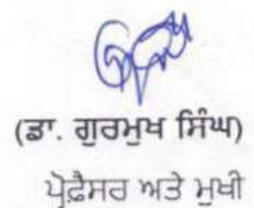 (ਡਾ. ਗੁਰਮੁਖ ਸਿੰਘ)
ਪ੍ਰੋਫ਼ੈਸਰ ਅਤੇ ਮੁਖੀ